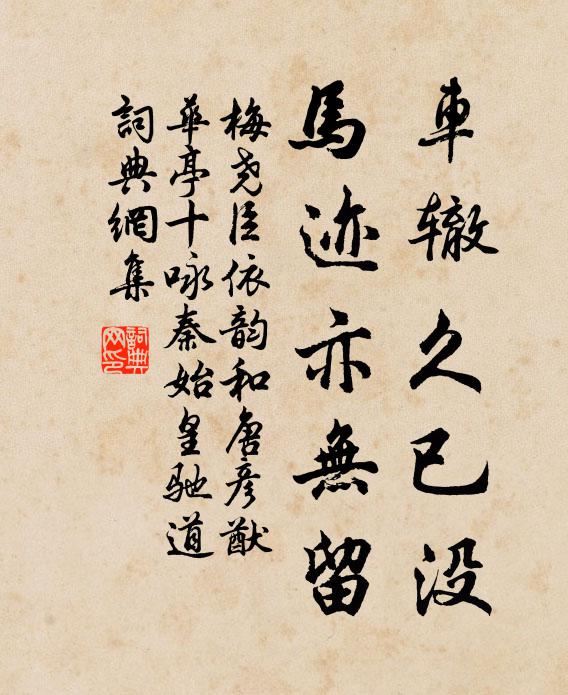 車辙久已没
馬迹亦無留
梅尧臣依韵和唐彦猷
華亭十咏秦始皇馳道
詞典網集
詞典网印